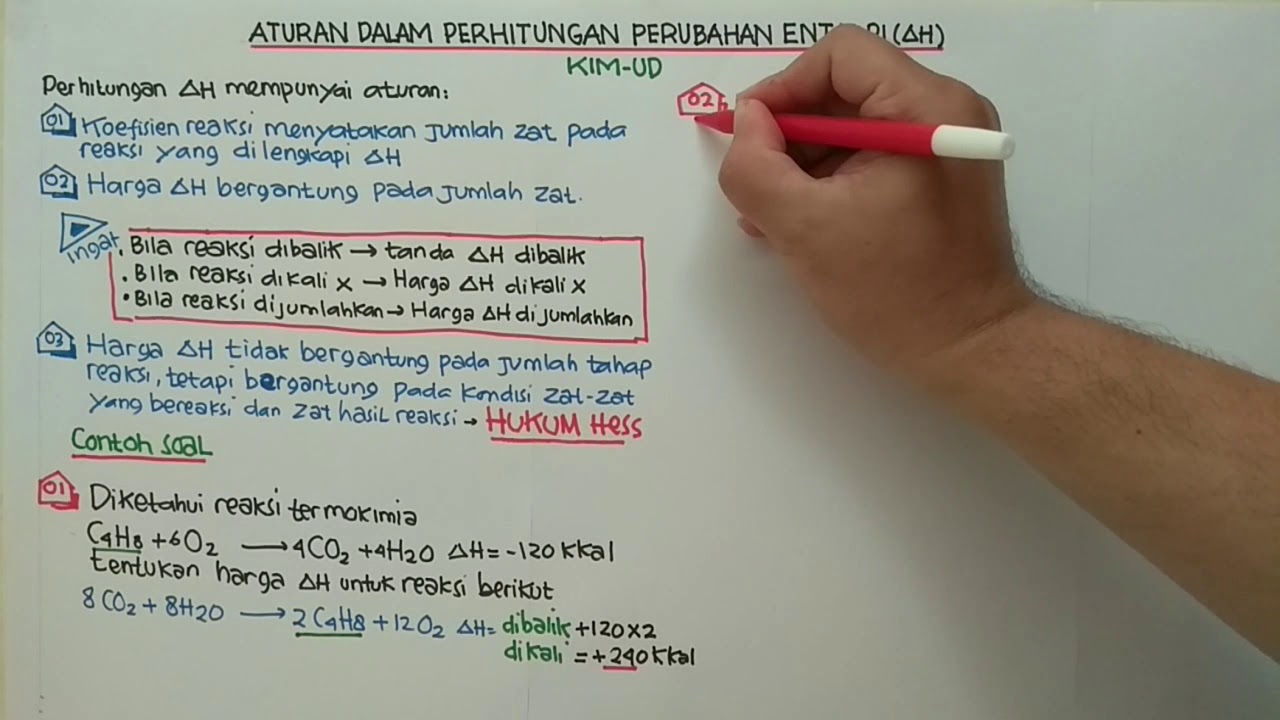 ATURAN DALAM PERHITUNGAN PERUBAHAN (ΔH)
KIM-UD
Perhitungan ΔH mempunyai aturan:
01 Koefisien reaksi menyatakan jumlah zat pada
reaksi yang dilengkapi ΔH
02 Harga ΔH bergantung pada jumlah zat.
Ingat
. Bila reaksi dibalik → tanda ΔH dibalik
. Bila reaksi dikali x → Harga ΔH dikali x
• Bila reaksi dijumlahkan → Harga ΔH dijumlahkan
03 Harga ΔH tidak bergantung pada jumlah tahap
reaksi, tetapi bergantung pada kondisi zat-zat
yang bereaksi dan zat hasil reaksi → HUKUM Hess
Contoh soal
01 Diketahui reaksi termokimia
C4H8 + 6O2 → 4CO2 + 4H2O ΔH = -120 kkal
tentukan harga ΔH untuk reaksi berikut
8CO2 + 8H2O → 2C4H8 + 12O2 ΔH = dibalik +120x2
dikali = +240 kkal
02